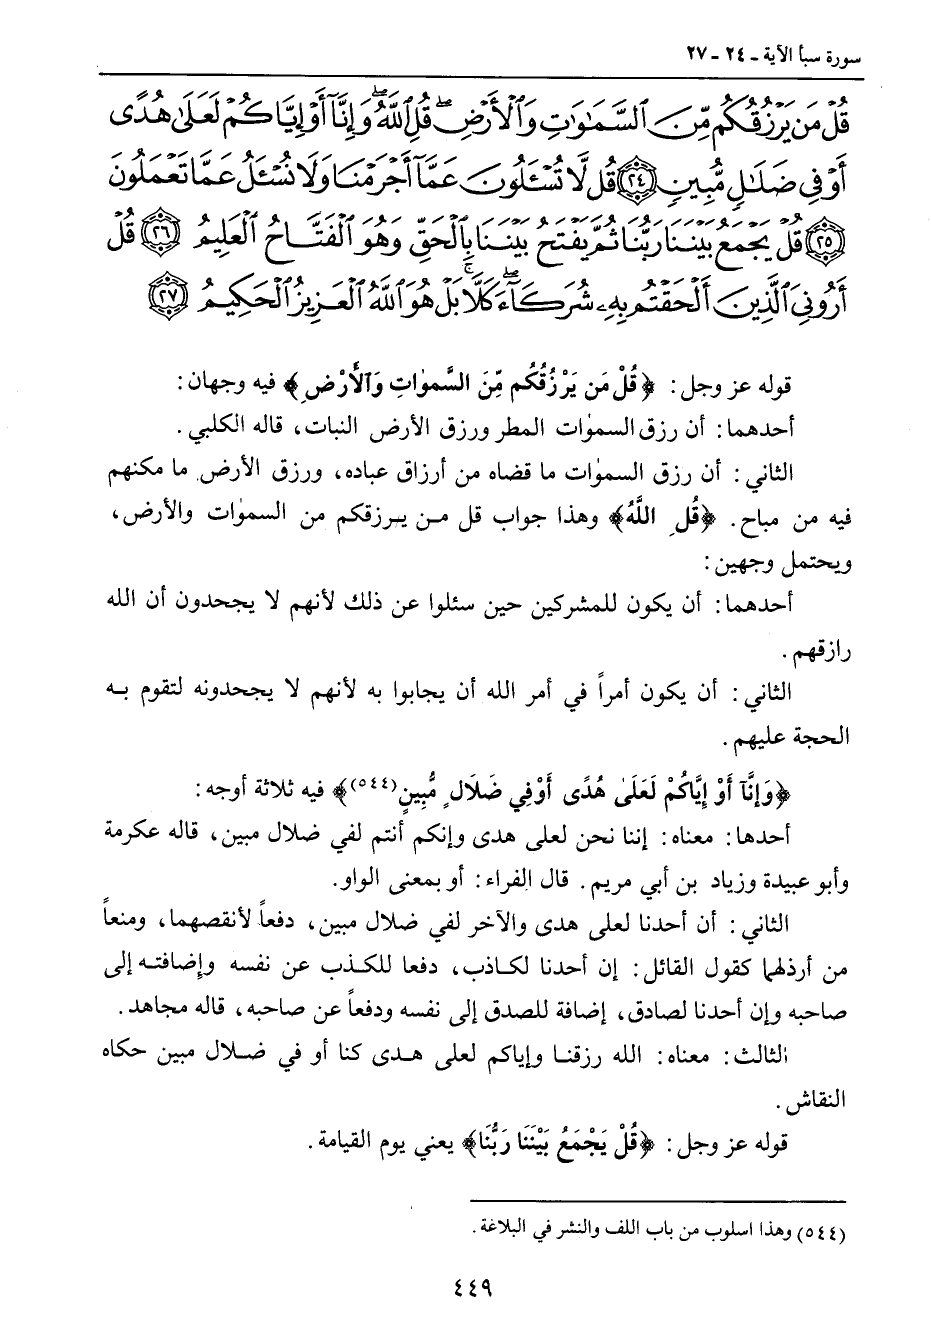 سورة سبأ الآية ـ ٢٤ ـ ٢٧
قُلْ مَن يَرْزُقُكُم مِّنَ ٱلسَّمَٰوَٰتِ وَٱلْأَرْضِۖ قُلِ ٱللَّهُۖ وَإِنَّآ أَوْ إِيَّاكُمْ لَعَلَىٰ هُدًى
أَوْ فِى ضَلَٰلٍ مُّبِينٍ ٢٤ قُل لَّا تُسْـَٔلُونَ عَمَّآ أَجْرَمْنَا وَلَا نُسْـَٔلُ عَمَّا تَعْمَلُونَ
٢٥ قُلْ يَجْمَعُ بَيْنَنَا رَبُّنَا ثُمَّ يَفْتَحُ بَيْنَنَا بِٱلْحَقِّ وَهُوَ ٱلْفَتَّاحُ ٱلْعَلِيمُ ٢٦ قُلْ
أَرُونِىَ ٱلَّذِينَ أَلْحَقْتُم بِهِۦ شُرَكَآءَۖ كَلَّاۚ بَلْ هُوَ ٱللَّهُ ٱلْعَزِيزُ ٱلْحَكِيمُ ٢٧
قوله عز وجل: ﴿قُلْ مَن يَرْزُقُكُم مِّنَ السَّمٰواتِ وَالْأَرْضِ﴾ فيه وجهان:
أحدهما: أن رزق السمٰوات المطر ورزق الأرض النبات، قاله الكلبي.
الثاني: أن رزق السمٰوات ما قضاه من أرزاق عباده، ورزق الأرض ما مكنهم
فيه من مباح. ﴿قُلِ اللَّهُ﴾ وهذا جواب قل من يرزقكم من السمٰوات والأرض،
ويحتمل وجهين:
أحدهما: أن يكون للمشركين حين سئلوا عن ذلك لأنهم لا يجحدون أن الله
رازقهم.
الثاني: أن يكون أمراً في أمر الله أن يجابوا به لأنهم لا يجحدونه لتقوم به
الحجة عليهم.
﴿وَإِنَّآ أَوْ إِيَّاكُمْ لَعَلَىٰ هُدًى أَوْ فِي ضَلَالٍ مُّبِينٍ(٥٤٤)﴾ فيه ثلاثة أوجه:
أحدها: معناه: إننا نحن لعلى هدى وإنكم أنتم لفي ضلال مبين، قاله عكرمة
وأبو عبيدة وزياد بن أبي مريم. قال الفراء: أو بمعنى الواو.
الثاني: أن أحدنا لعلى هدى والآخر لفي ضلال مبين، دفعاً لأنقصهما، ومنعاً
من أرذلهما كقول القائل: إن أحدنا لكاذب، دفعا للكذب عن نفسه وإضافته إلى
صاحبه وإن أحدنا لصادق، إضافة للصدق إلى نفسه ودفعاً عن صاحبه، قاله مجاهد.
الثالث: معناه: الله رزقنا وإياكم لعلى هدى كنا أو في ضلال مبين حكاه
النقاش.
قوله عز وجل: ﴿قُلْ يَجْمَعُ بَيْنَنَا رَبُّنَا﴾ يعني يوم القيامة.
(٥٤٤) وهذا اسلوب من باب اللف والنشر في البلاغة.
٤٤٩